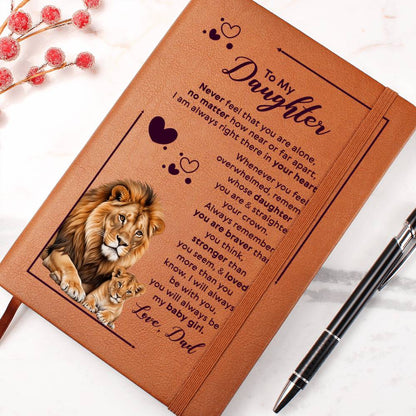 To My
Daughter
Never feel that you are alone,
no matter how near or far apart.
I am always right there in your heart
Whenever you feel
overwhelmed, remem
whose daughter
you are & straighte
your crown.
Always remember
you are braver than
you think,
stronger than
you seem, & loved
more than you
know. I will always
be with you,
you will always be
my baby girl.
Love, Dad